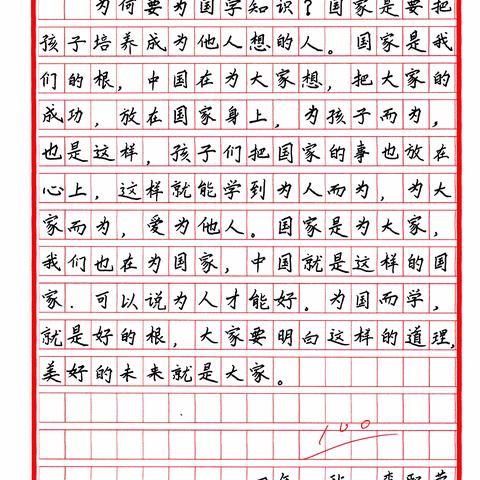 为何要为国学知识？国家是要把
孩子培养成为他人想的人。国家是我
们的根，中国在为大家想，把大家的
成功，放在国家身上，为孩子而为，
也是这样，孩子们把国家的事也放在
心上，这样就能学到为人而为，为大
家而为，爱为他人。国家是为大家，
我们也在为国家，中国就是这样的国
家．可以说为人才能好。为国而学，
就是好的根，大家要明白这样的道理，
美好的未来就是大家。
100